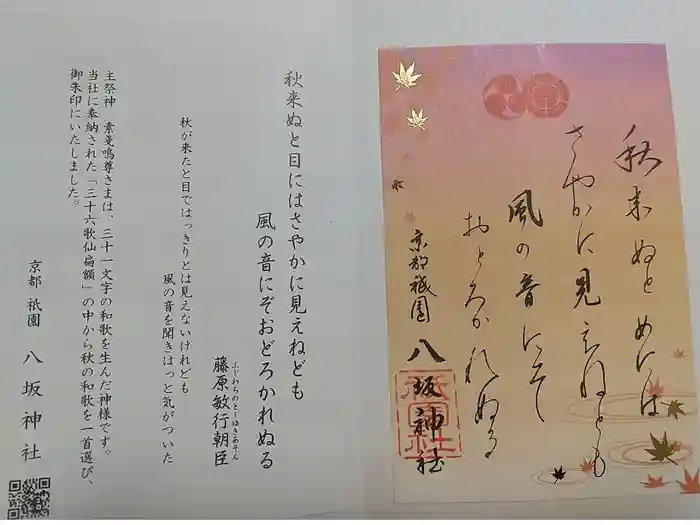 秋来ぬと めには
さやかに見えねども
風の音にぞ
おどろかれぬる
京都祇園 八坂神社
秋来ぬと目にはさやかに見えねども
風の音にぞおどろかれぬる
藤原敏行朝臣
ふじわらのとしゆきあそん
秋が来たと目ではっきりとは見えないけれども
風の音を聞きはっと気がついた
主祭神 素戔嗚尊さまは、三十一文字の和歌を生んだ神様です。
当社に奉納された「三十六歌仙扁額」の中から秋の和歌を一首選び、
御朱印にいたしました。
京都 祇園 八坂神社